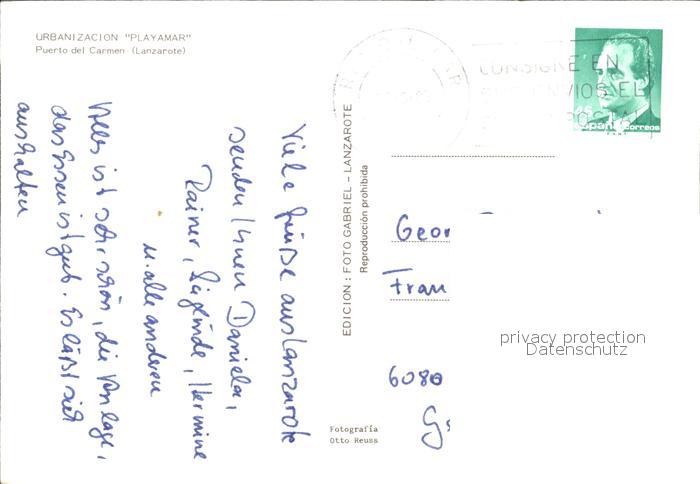 URBANIZACION "PLAYAMAR"
Puerto del Carmen (Lanzarote)
CONSIGNE EN
SUS ENVIOS EL
POSTAL
España correos
Viele Grüße aus Lanzarote
senden Ihnen Daniela,
Rainer, Sieglinde, Hermine
u. alle anderen
Alles ist sehr schön, die Anlage,
das Essen ist gut. Es läßt sich
aushalten
EDICION: FOTO GABRIEL - LANZAROTE
Reproducción prohibida
Geor
Frau
6080
privacy protection
Datenschutz
Fotografía
Otto Reuss